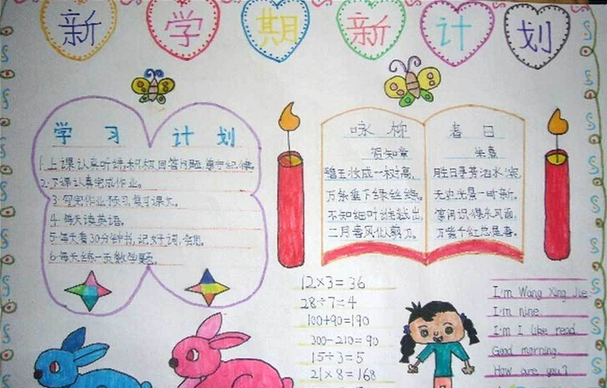 新学期新计划
学习计划
1.上课认真听讲,积极回答问题,遵守纪律。
2.下课认真完成作业。
3.写完作业,预习,复习课文。
4.每天读英语。
5.每天看30分钟书,记好词,好句。
6.每天练一页数学题。
咏柳
贺知章
碧玉妆成一树高,
万条垂下绿丝绦。
不知细叶谁裁出,
二月春风似剪刀。
春日
朱熹
胜日寻芳泗水滨,
无边光景一时新。
等闲识得东风面,
万紫千红总是春。
12×3=36
28÷7=4
100+90=190
300-210=90
15÷3=5
21×8=168
I'm Wang Xing Jie
I'm nine.
I'm I like read
Good morning.
How are you?